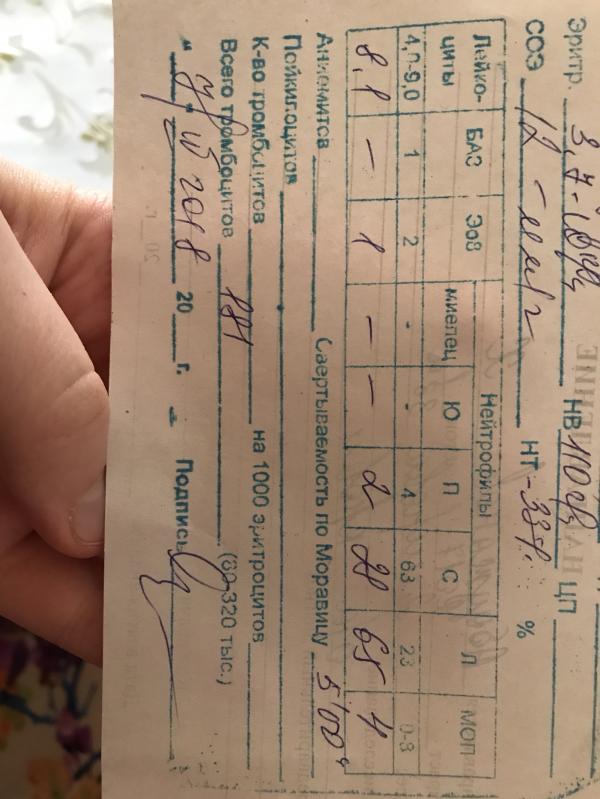 Эритр. 3,7 НВ 110 гр ЦП
СОЭ 12 - мм/г НТ - 33% %
Лейкоциты БАЗ Эоз Нейтрофилы Л МОН
миелец Ю П С
4,0-9,0 1 2 - - 4 63 23 0-8
8,1 — 1 — — 2 28 65 4
Анизоцитов Свертываемость по Моравицу 5'00"
Пойкилоцитов
К-во тромбоцитов на 1000 эритроцитов
Всего тромбоцитов (320 тыс.)
" 2018 20 г. Подпись